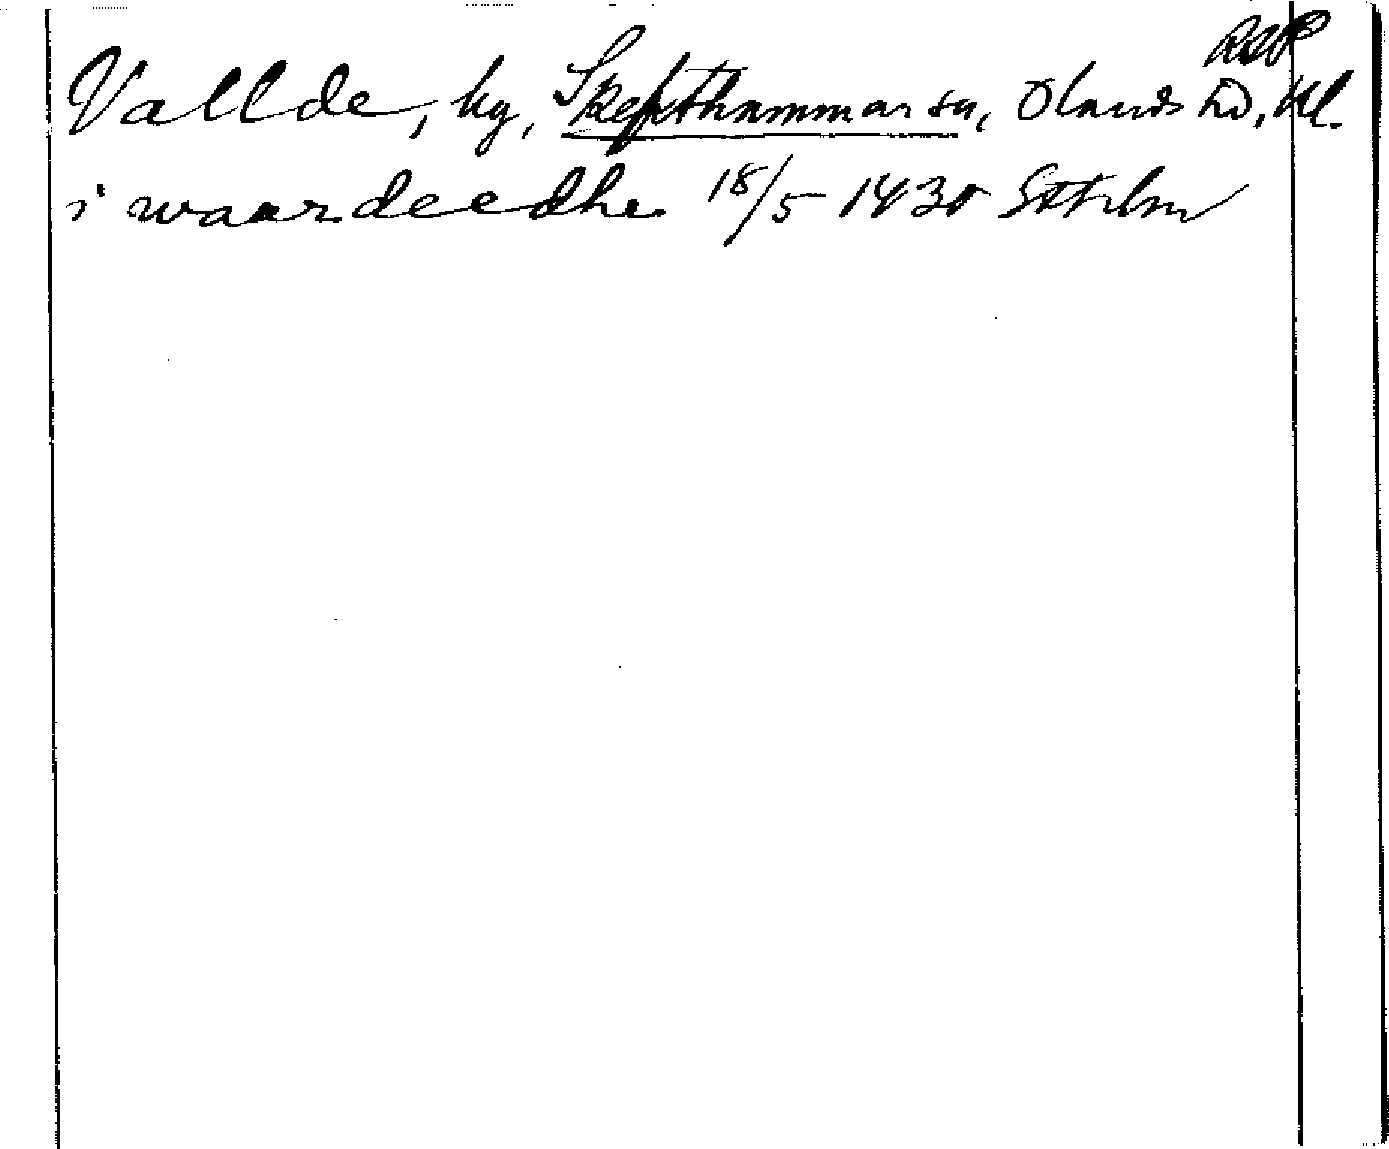 RAP
Vallde, by, Skepthammar sn, Olands hd, Ul.
i waardeedhe 18/5 1430 Sthlm